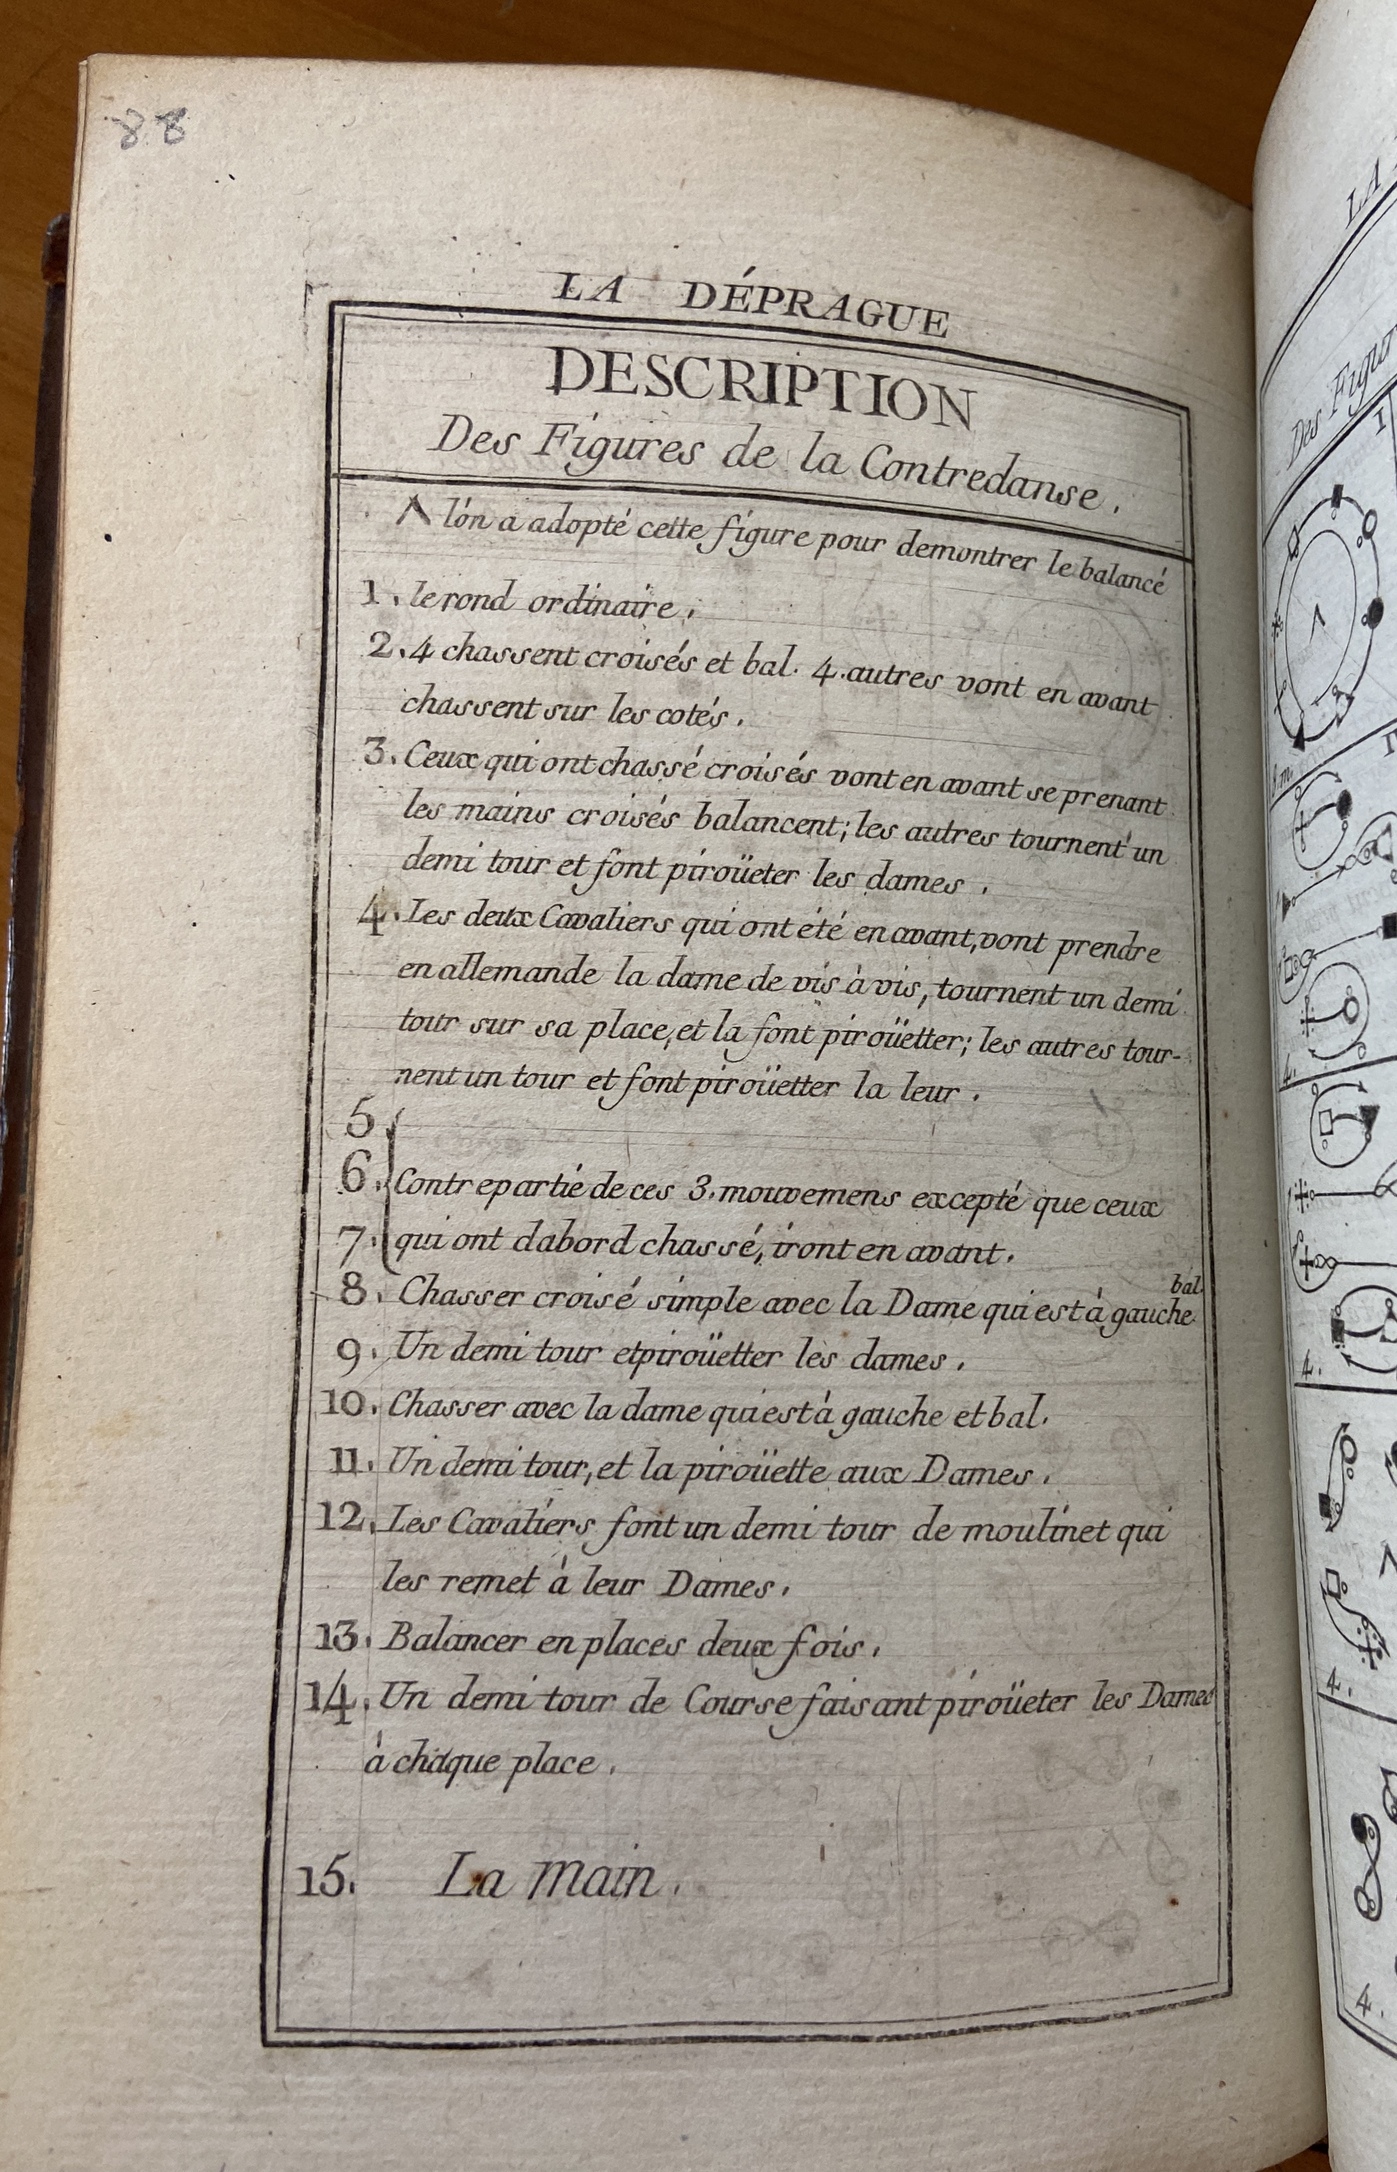 88
LA DÉPRAGUE
DESCRIPTION
Des Figures de la Contredanse.
Λ l'on a adopté cette figure pour demontrer le balancé
1. le rond ordinaire.
2. 4 chassent croisés et bal. 4. autres vont en avant
chassent sur les cotés.
3. Ceux qui ont chassé croisés vont en avant se prenant
les mains croisés balancent; les autres tournent un
demi tour et font piroüeter les dames.
4. Les deux Cavaliers qui ont été en avant, vont prendre
en allemande la dame de vis à vis, tournent un demi
tour sur sa place, et la font piroüetter; les autres tour-
nent un tour et font piroüetter la leur.
5
6. Contrepartié de ces 3. mouvemens excepté que ceux
7. qui ont dabord chassé, iront en avant.
8. Chasser croisé simple avec la Dame qui est à gauche bal.
9. Un demi tour et piroüetter les dames.
10. Chasser avec la dame qui est à gauche et bal.
11. Un demi tour, et la piroüette aux Dames.
12. Les Cavaliers font un demi tour de moulinet qui
les remet à leur Dames.
13. Balancer en places deux fois.
14. Un demi tour de Course faisant piroüeter les Dames
à chaque place.
15. La main.
LA
Des Figur
1
8.m.
4.
4.
4.
4.